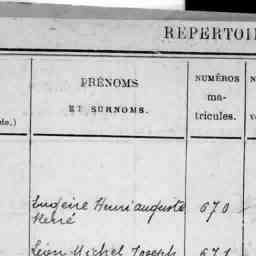 RÉPERTOI
PRÉNOMS
ET SURNOMS.
NUMÉROS
ma-
tricules.
N
v
de.)
Eugène Henri auguste 670
René
Léon Michel Joseph 671